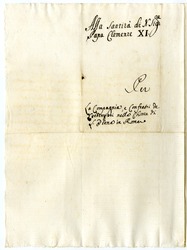 Alla Santità di N. Sig.re
Papa Clemente XI
Per
La Compagnia, e Confrati di
nella Chiesa di
in Roma